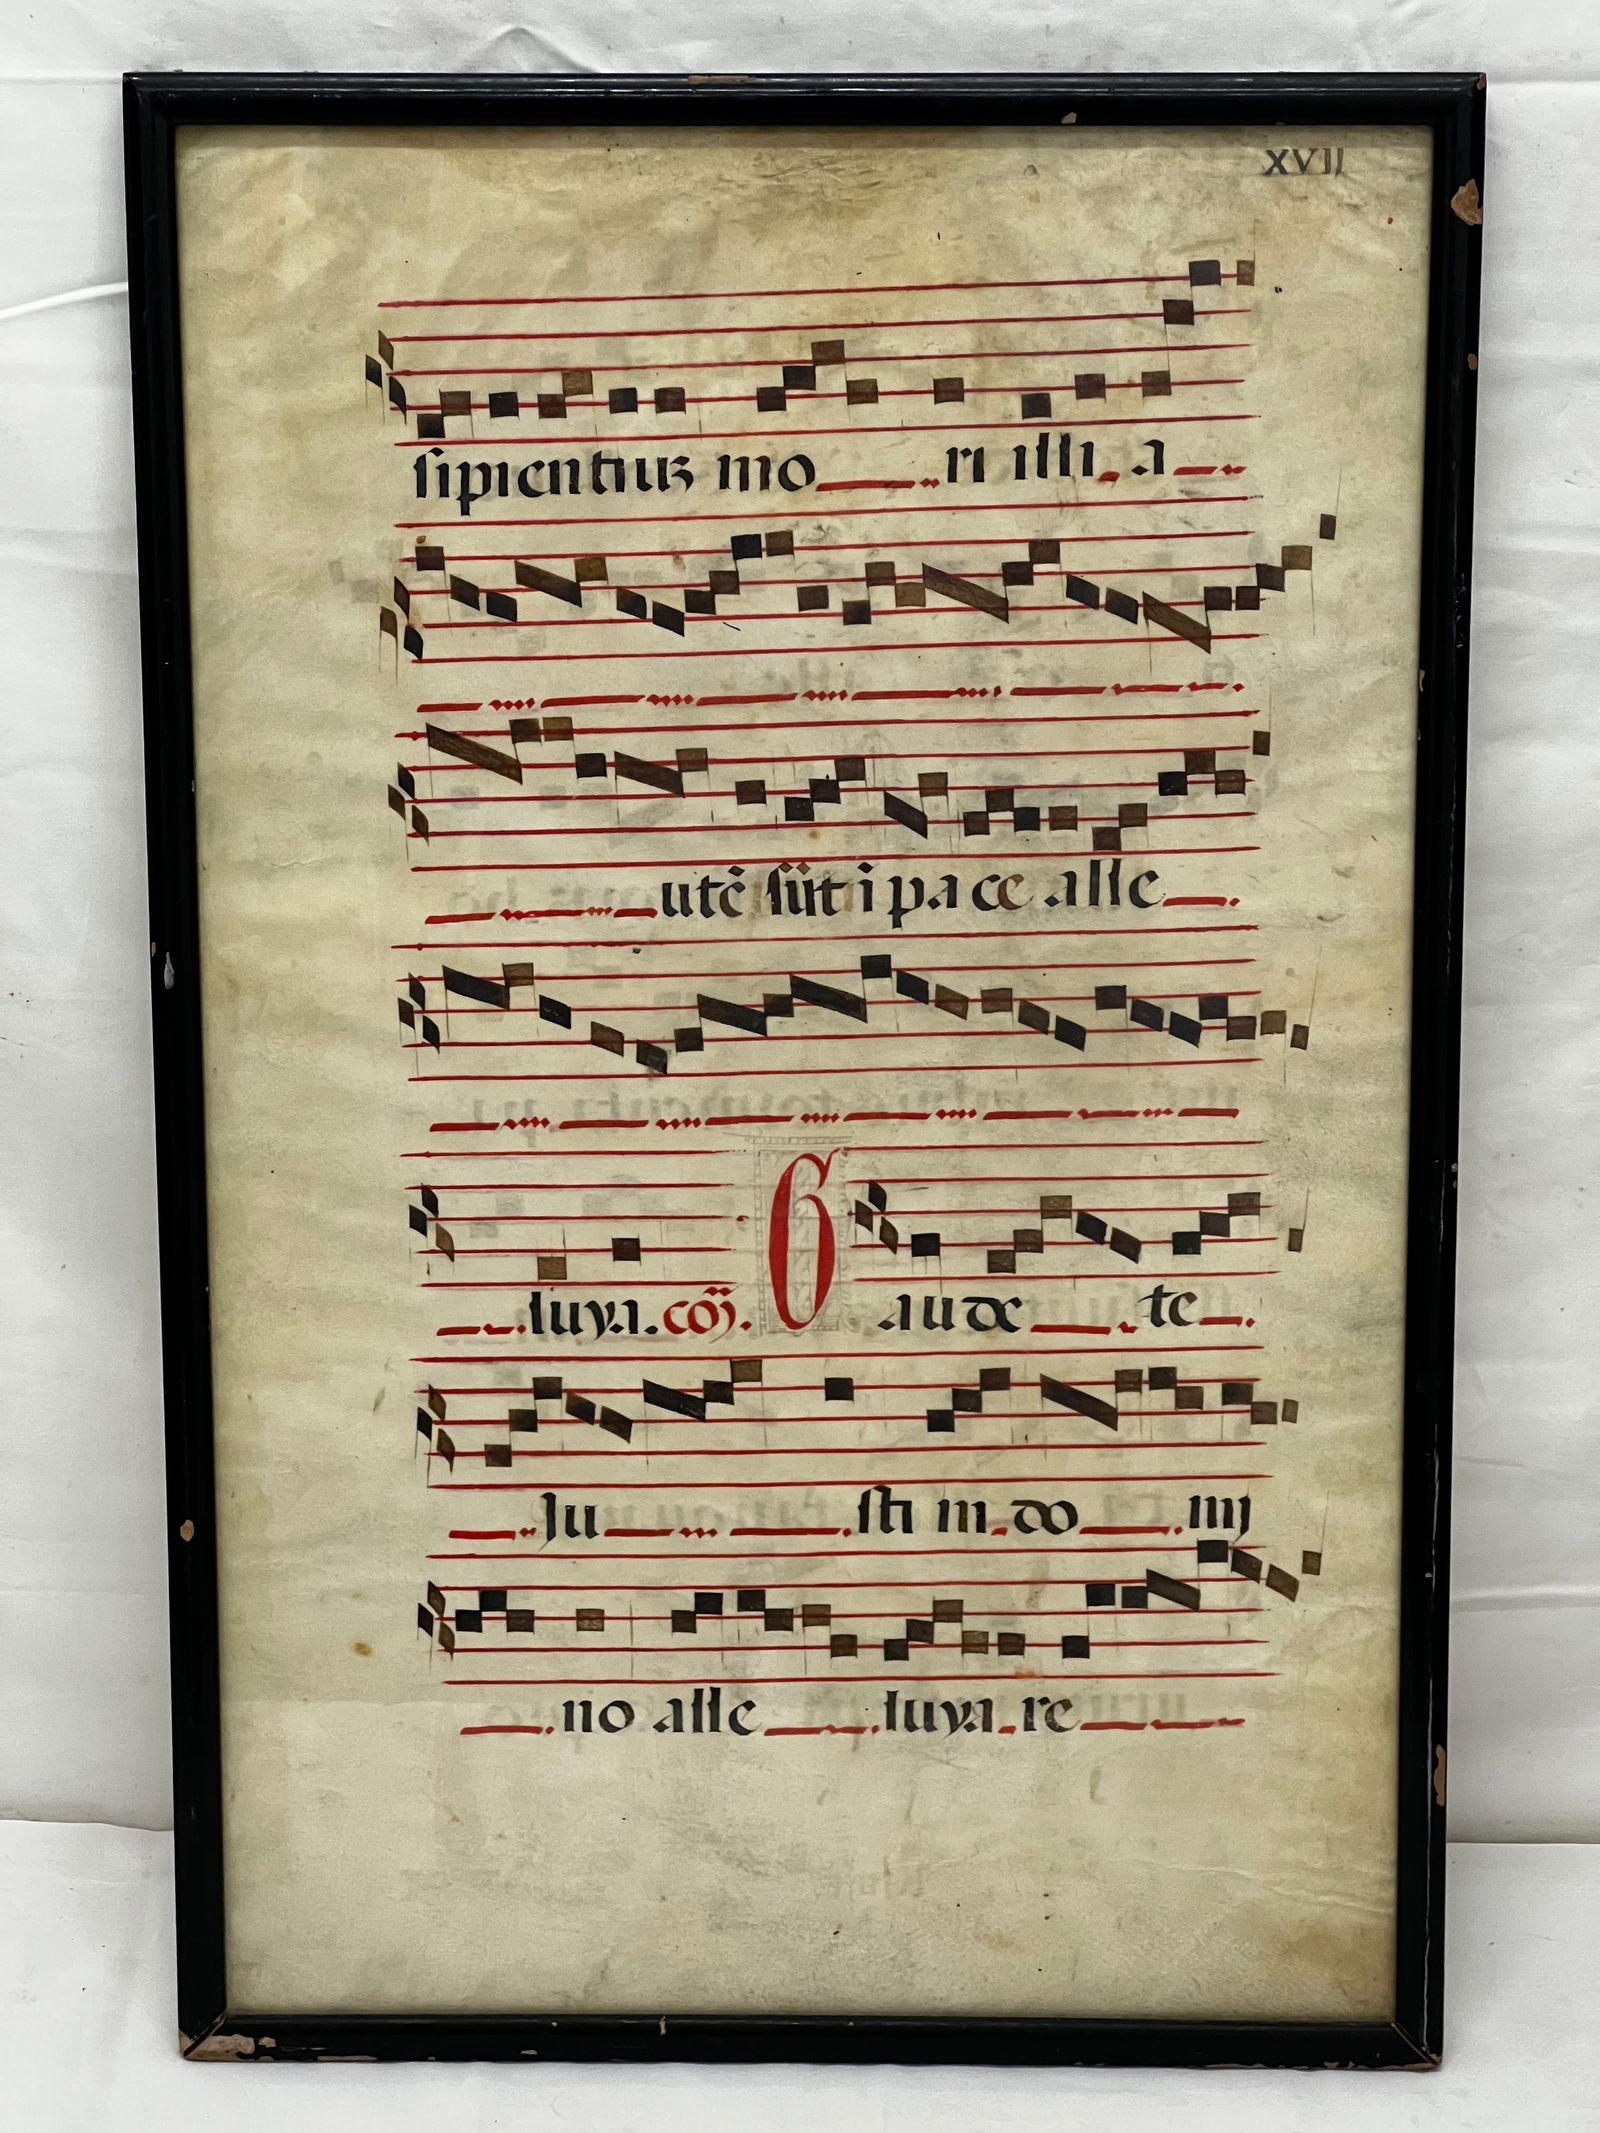 XVII
sipientiuʒ mo ri illi a
utē sūt ī pace alle
luya. cōj. G aude te
Ju sti in do mi
no alle luya re